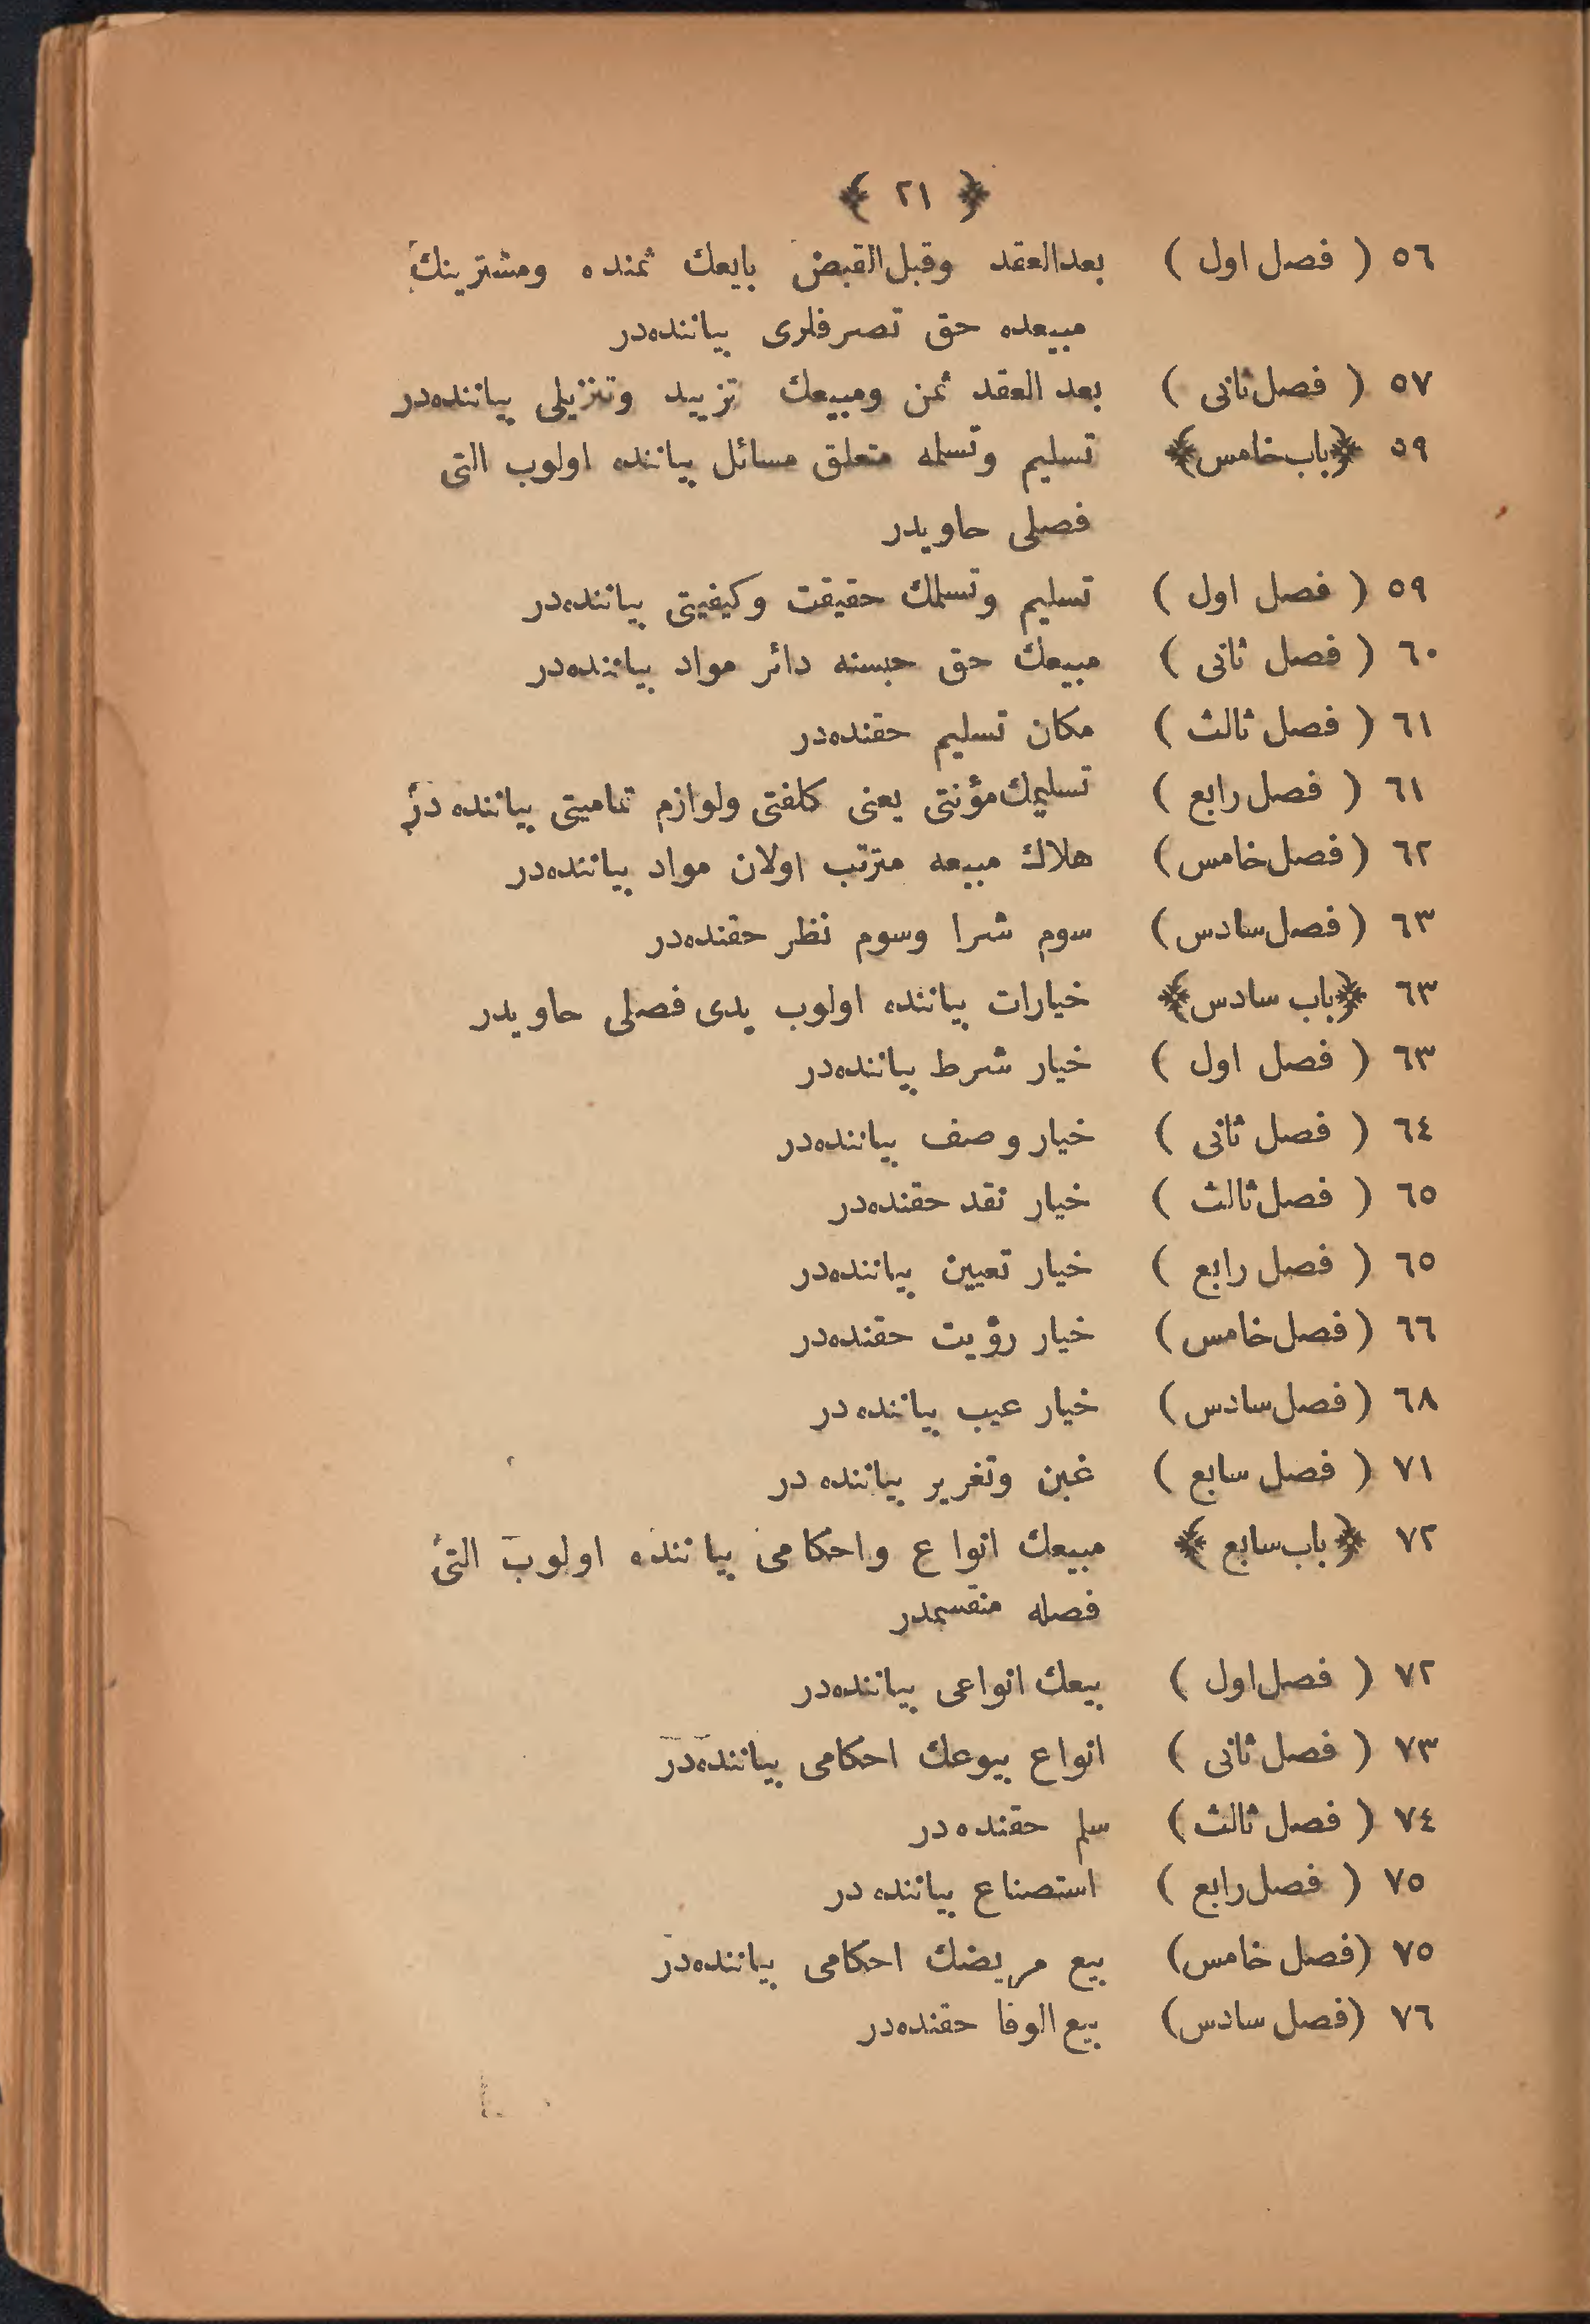 ﴿ ٢١ ﴾
٥٦ ( فصل اول ) بعدالعقد وقبل‌القبض بايعك ثمنده ومشترينك
مبيعده حق تصرفلرى بياننده‌در
٥٧ ( فصل ثانى ) بعد العقد ثمن ومبيعك تزييد وتنزيلى بياننده‌در
٥٩ ﴿باب خامس﴾ تسليم وتسلمه متعلق مسائل بياننده اولوب التى
فصلى حاويدر
٥٩ ( فصل اول ) تسليم وتسلمك حقيقت وكيفيتى بياننده‌در
٦٠ ( فصل ثانى ) مبيعك حق حبسنه دائر مواد بياننده‌در
٦١ ( فصل ثالث ) مكان تسليم حقنده‌در
٦١ ( فصل رابع ) تسليمك مؤنتى يعنى كلفتى ولوازم تماميتى بياننده در
٦٢ (فصل خامس) هلاك مبيعه مترتب اولان مواد بياننده‌در
٦٣ (فصل سادس) سوم شرا وسوم نظر حقنده‌در
٦٣ ﴿باب سادس﴾ خيارات بياننده اولوب يدى فصلى حاويدر
٦٣ ( فصل اول ) خيار شرط بياننده‌در
٦٤ ( فصل ثانى ) خيار وصف بياننده‌در
٦٥ ( فصل ثالث ) خيار نقد حقنده‌در
٦٥ ( فصل رابع ) خيار تعيين بياننده‌در
٦٦ (فصل خامس) خيار رؤيت حقنده‌در
٦٨ (فصل سادس) خيار عيب بياننده در
٧١ ( فصل سابع ) غبن وتغرير بياننده در
٧٢ ﴿باب سابع ﴾ مبيعك انواع واحكامى بياننده اولوب التى
فصله منقسمدر
٧٢ ( فصل اول ) بيعك انواعى بياننده‌در
٧٣ ( فصل ثانى ) انواع بيوعك احكامى بياننده‌در
٧٤ ( فصل ثالث ) سلم حقنده در
٧٥ ( فصل رابع ) استصناع بياننده در
٧٥ (فصل خامس) بيع مريضك احكامى بياننده‌در
٧٦ (فصل سادس) بيع الوفا حقنده‌در